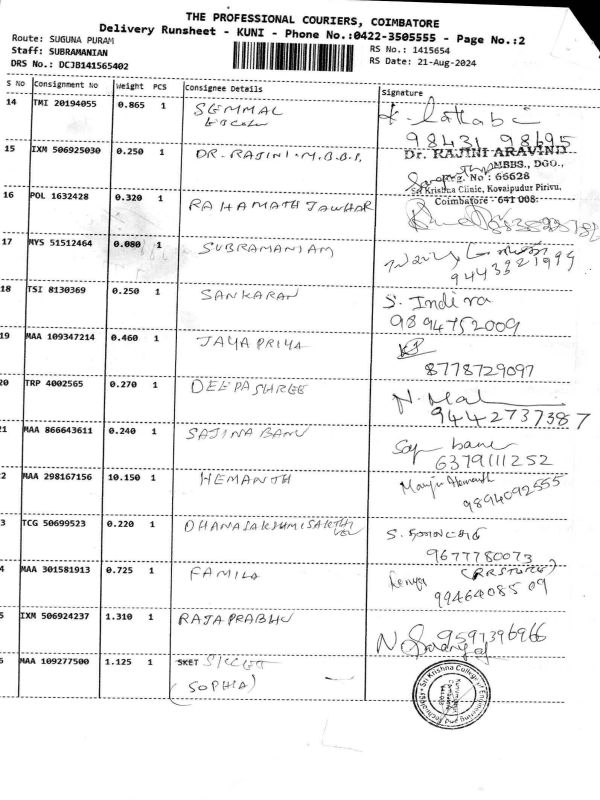 THE PROFESSIONAL COURIERS, COIMBATORE
Delivery Runsheet - KUNI - Phone No.:0422-3505555 - Page No.:2
Route: SUGUNA PURAM
Staff: SUBRAMANIAN
DRS No.: DCJB141565402
RS No.: 1415654
RS Date: 21-Aug-2024
S No Consignment No Weight PCS Consignee Details Signature
14 TMI 20194055 0.865 1 SEMMAL
98431 98195
15 IXM 506925030 0.250 1 DR. RAJINI. M.B.B.S.
Dr. RAJINI ARAVIND
MBBS., DGO.,
Reg. No : 66628
Sri Krishna Clinic, Kovaipudur Pirivu,
Coimbatore - 641 008.
16 POL 1632428 0.320 1 RAHAMATH JAWHAR
17 MYS 51512464 0.080 1 SUBRAMANIAM
9443321999
18 TSI 8130369 0.250 1 SANKARAN S. Indira
9894752009
19 MAA 109347214 0.460 1 JAYAPRIYA
8778729097
20 TRP 4002565 0.270 1 DEEPASHREE
9442737387
21 MAA 866643611 0.240 1 SAJINA BANU
6379111252
2 MAA 298167156 10.150 1 HEMANTH
9894092555
3 TCG 50699523 0.220 1 DHANALAKSHMI SAKTHI
VEL
9677780073
4 MAA 301581913 0.725 1 FAMILA
99464085 09
5 IXM 506924237 1.310 1 RAJAPRABHU
9597396966
6 MAA 109277500 1.125 1 SKET SKCET
(SOPHIA)
Sri Krishna College of Engineering and Technology